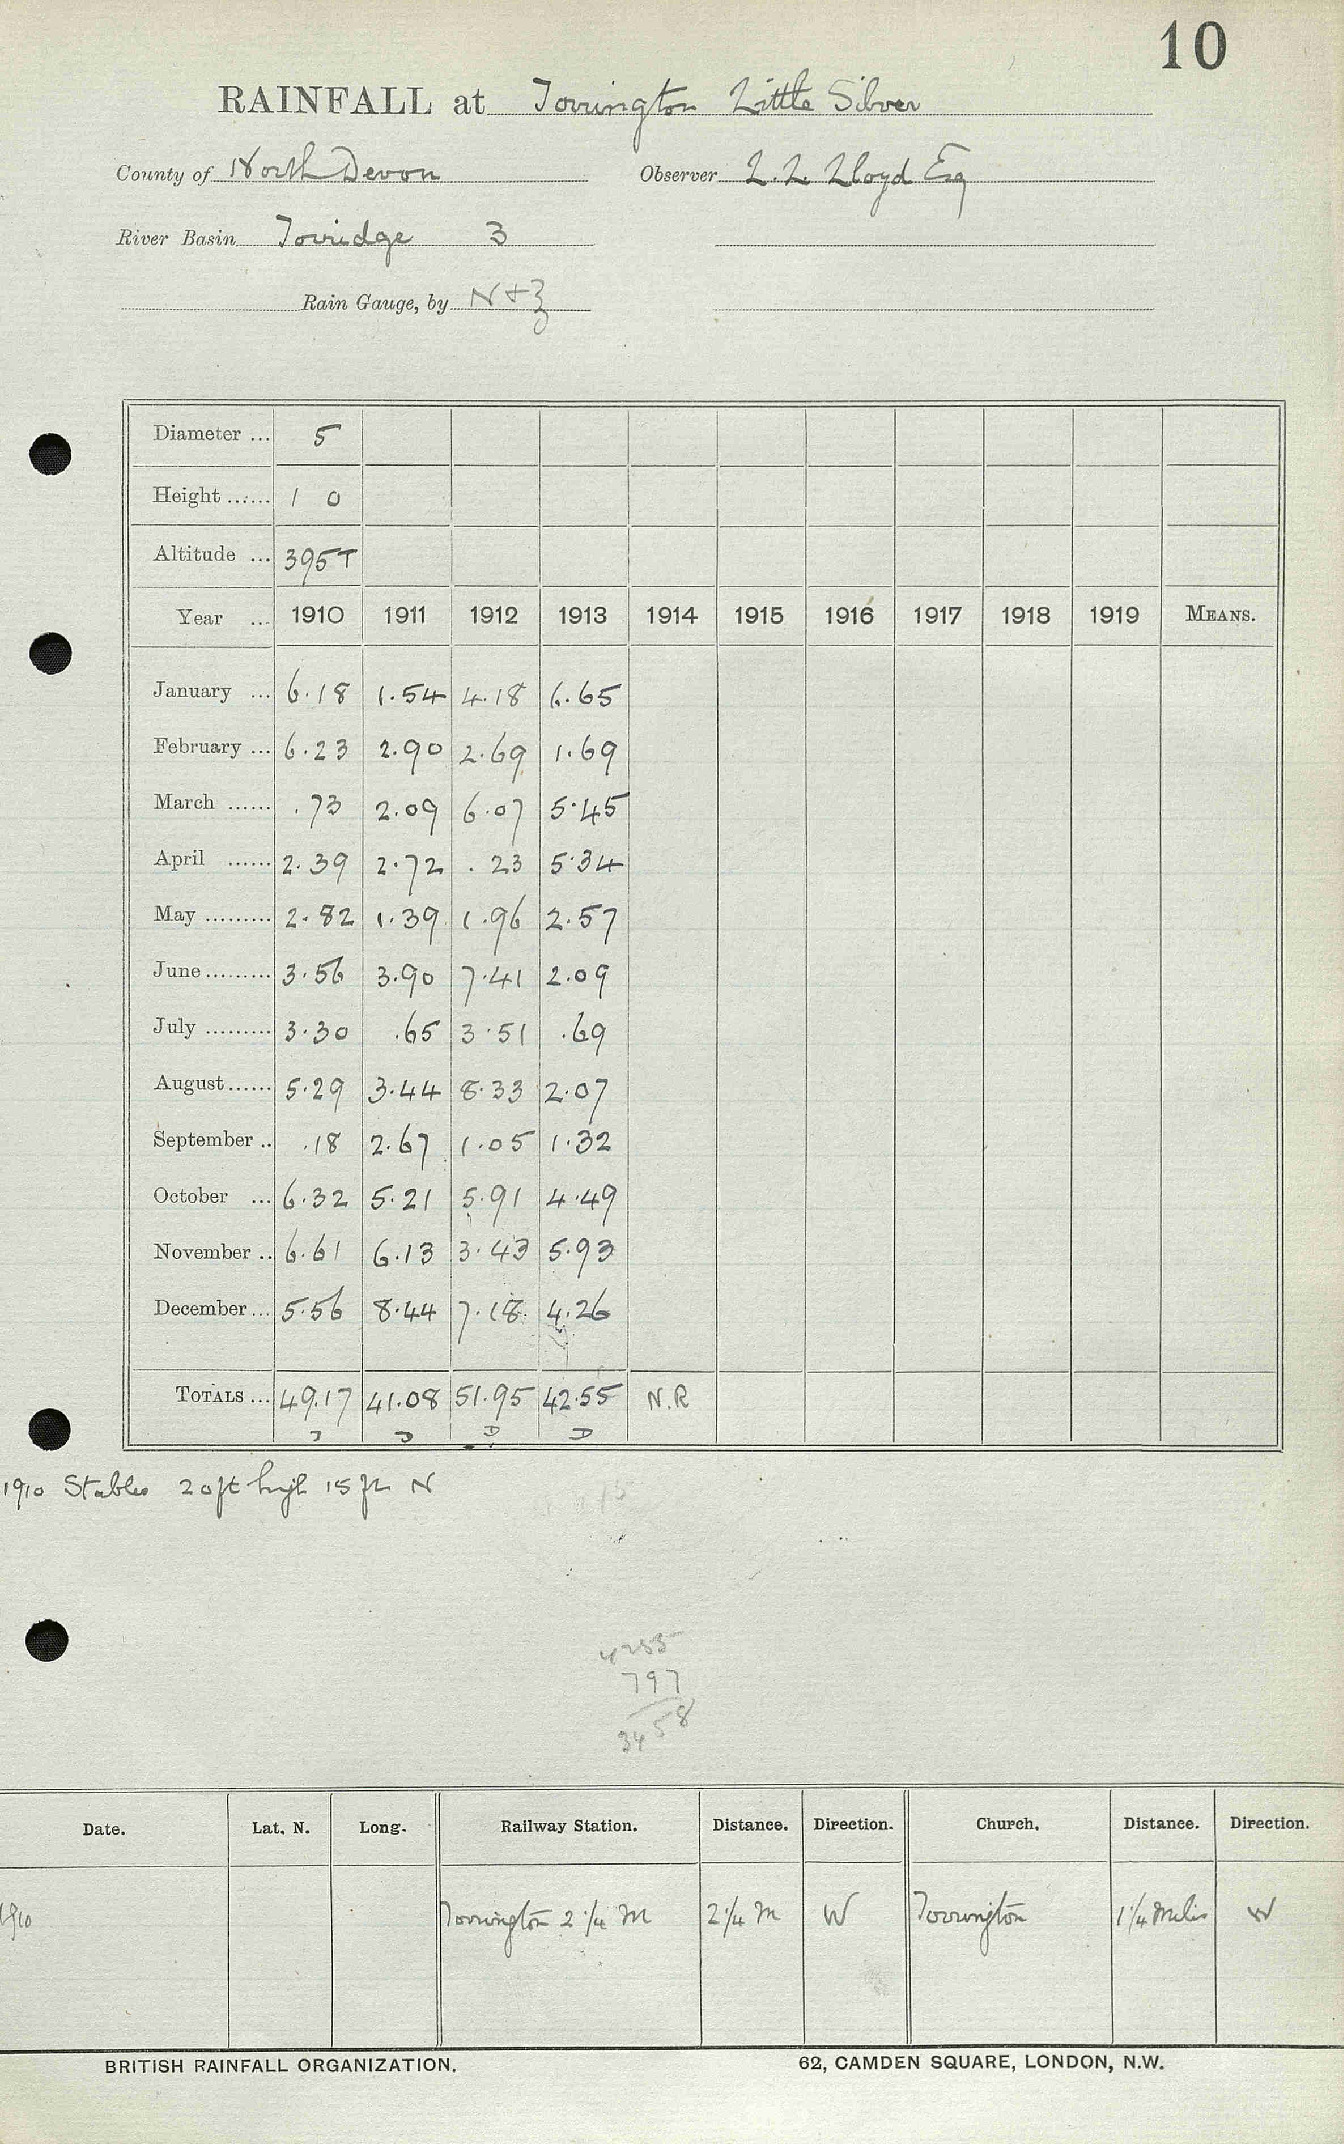 10
RAINFALL at Torrington Little Silver
County of North Devon Observer L. L. Lloyd Esq
River Basin Torridge 3
Rain Gauge, by N + Z
Diameter ... 5
Height ...... 1 0
Altitude ... 395 T
Year ... 1910 1911 1912 1913 1914 1915 1916 1917 1918 1919 MEANS.
January ... 6.18 1.54 4.18 6.65
February ... 6.23 2.90 2.69 1.69
March ...... .73 2.09 6.07 5.45
April ...... 2.39 2.72 .23 5.34
May ......... 2.82 1.39 1.96 2.57
June ......... 3.56 3.90 7.41 2.09
July ......... 3.30 .65 3.51 .69
August ...... 5.29 3.44 8.33 2.07
September .. .18 2.67 1.05 1.32
October ... 6.32 5.21 5.91 4.49
November .. 6.61 6.13 3.43 5.93
December ... 5.56 8.44 7.18 4.26
TOTALS ... 49.17 41.08 51.95 42.55 N.R
D D D
1910 Stables 20 ft high 15 ft N
4255
797
3458
Date. Lat. N. Long. Railway Station. Distance. Direction. Church. Distance. Direction.
1910 Torrington 2 1/4 M 2 1/4 M W Torrington 1 1/4 Miles W
BRITISH RAINFALL ORGANIZATION. 62, CAMDEN SQUARE, LONDON, N.W.